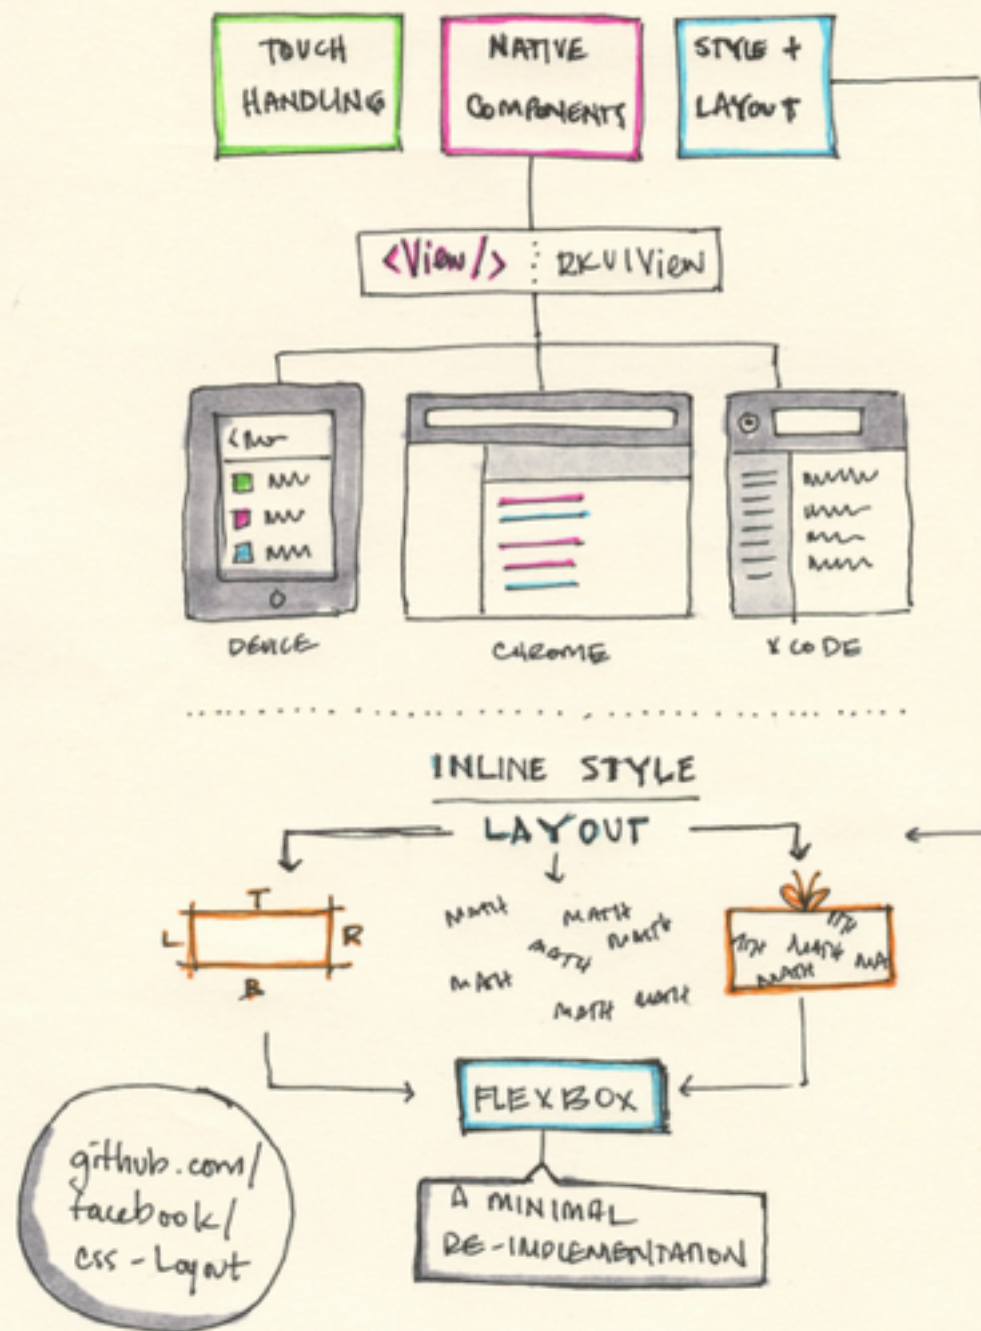 TOUCH
HANDLING
NATIVE
COMPONENTS
STYLE +
LAYOUT
<View/> : RKUIView
DEVICE
CHROME
XCODE
INLINE STYLE
LAYOUT
T
L
R
B
MATH
MATH
MATH
MATH
MATH
MATH
MATH
ITH
ITH
MATH
MATH
MA
FLEXBOX
A MINIMAL
RE-IMPLEMENTATION
github.com/
facebook/
css-Layout